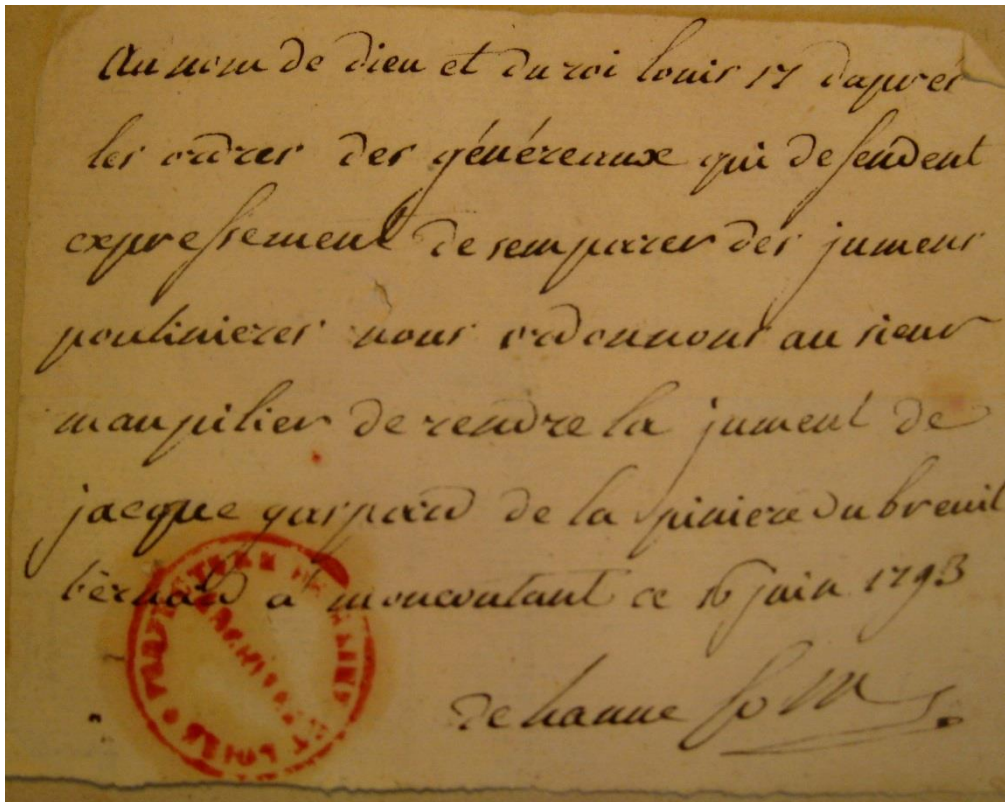 Au nom de dieu et du roi louis 17 daprés
les ordres des généreaux qui defendent
expressement de semparer des jumens
poulinieres nous ordonnons au sieur
maupilier de rendre la jument de
jacque gaspard de la piniere du breuil
bernard a moncoutant ce 16 juin 1793
de hanne
PREFECTURE DE MAINE ET LOIRE
ARCHIVES